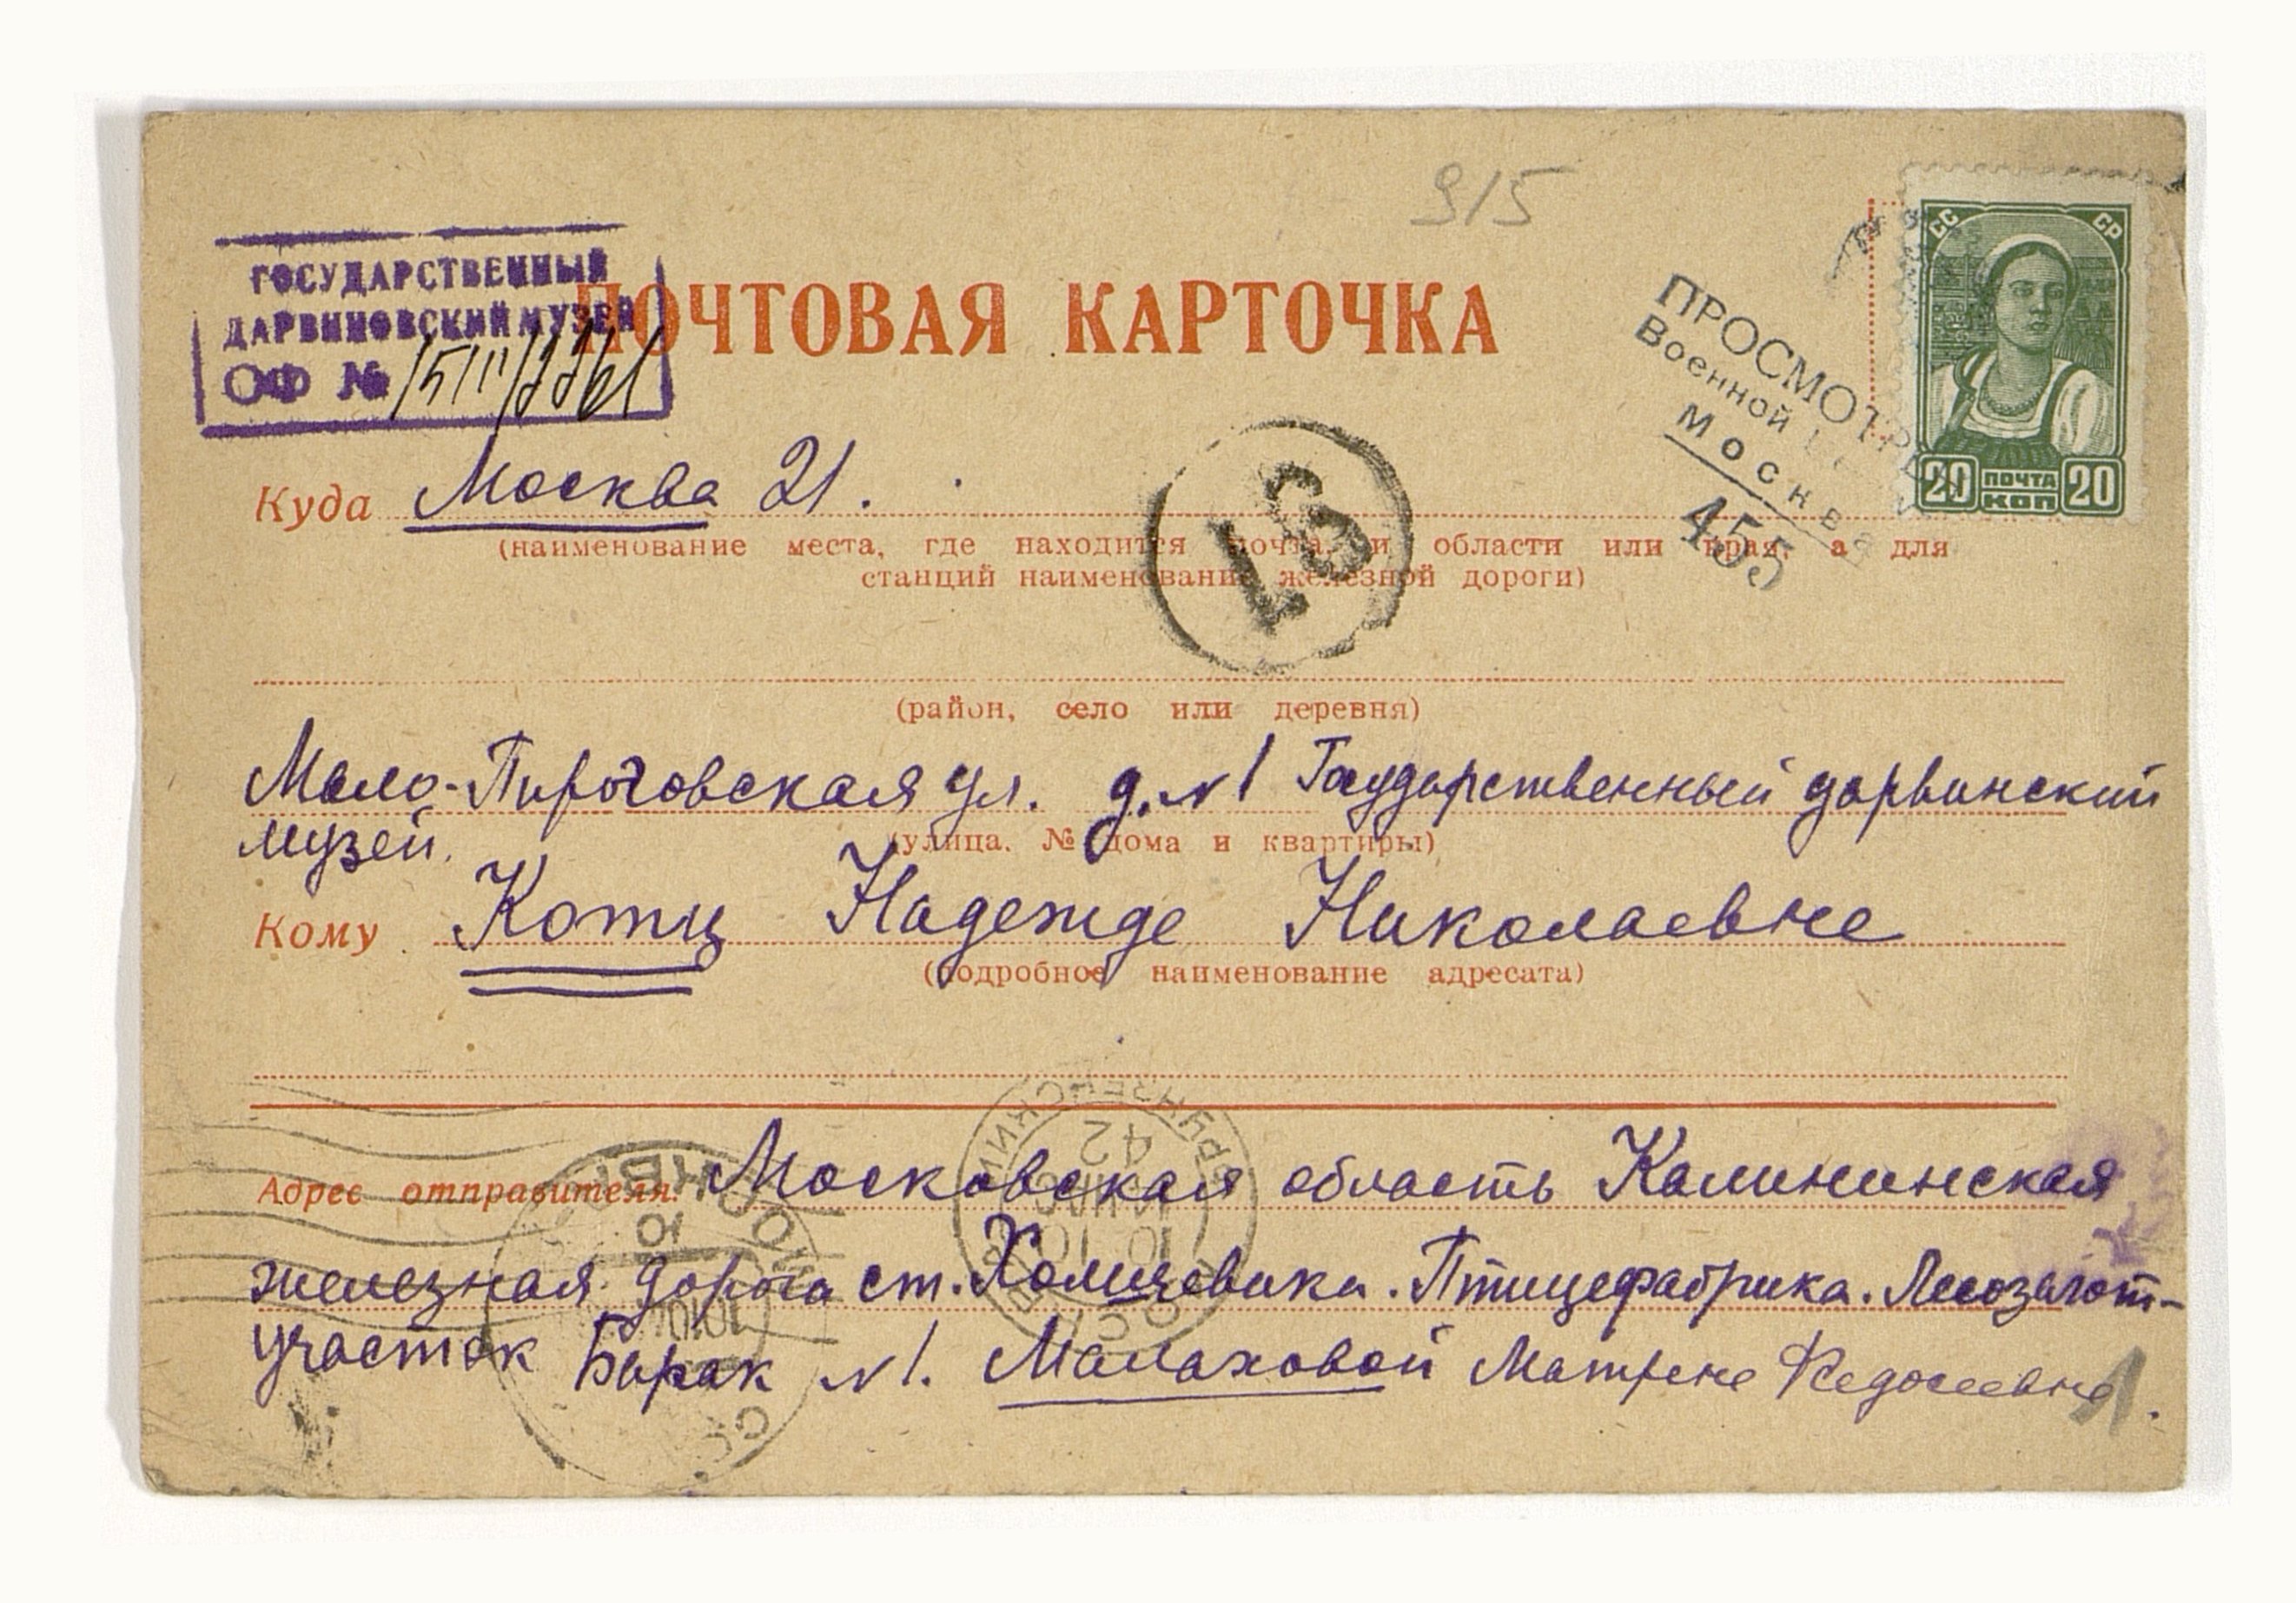 915
СС СР
ГОСУДАРСТВЕННЫЙ
ДАРВИНОВСКИЙ МУЗЕЙ
ОФ №
ПОЧТОВАЯ КАРТОЧКА
ПРОСМОТРЕНО
Военной
Москва
455
20 ПОЧТА КОП 20
Куда Москва 21.
(наименование места, где находится почта, и области или края, а для
станций наименование железной дороги)
91
(район, село или деревня)
Мало-Пироговская ул. д. №1 Государственный дарвинский
музей.
(улица, № дома и квартиры)
Кому Котц Надежде Николаевне
(подробное наименование адресата)
МОСКВА
10
42
10 10
Адрес отправителя: Московская область Калининская
железная дорога ст. Холщевики. Птицефабрика. Лесозагот-
участок Барак №1. Малаховой Матрене Федосеевне.